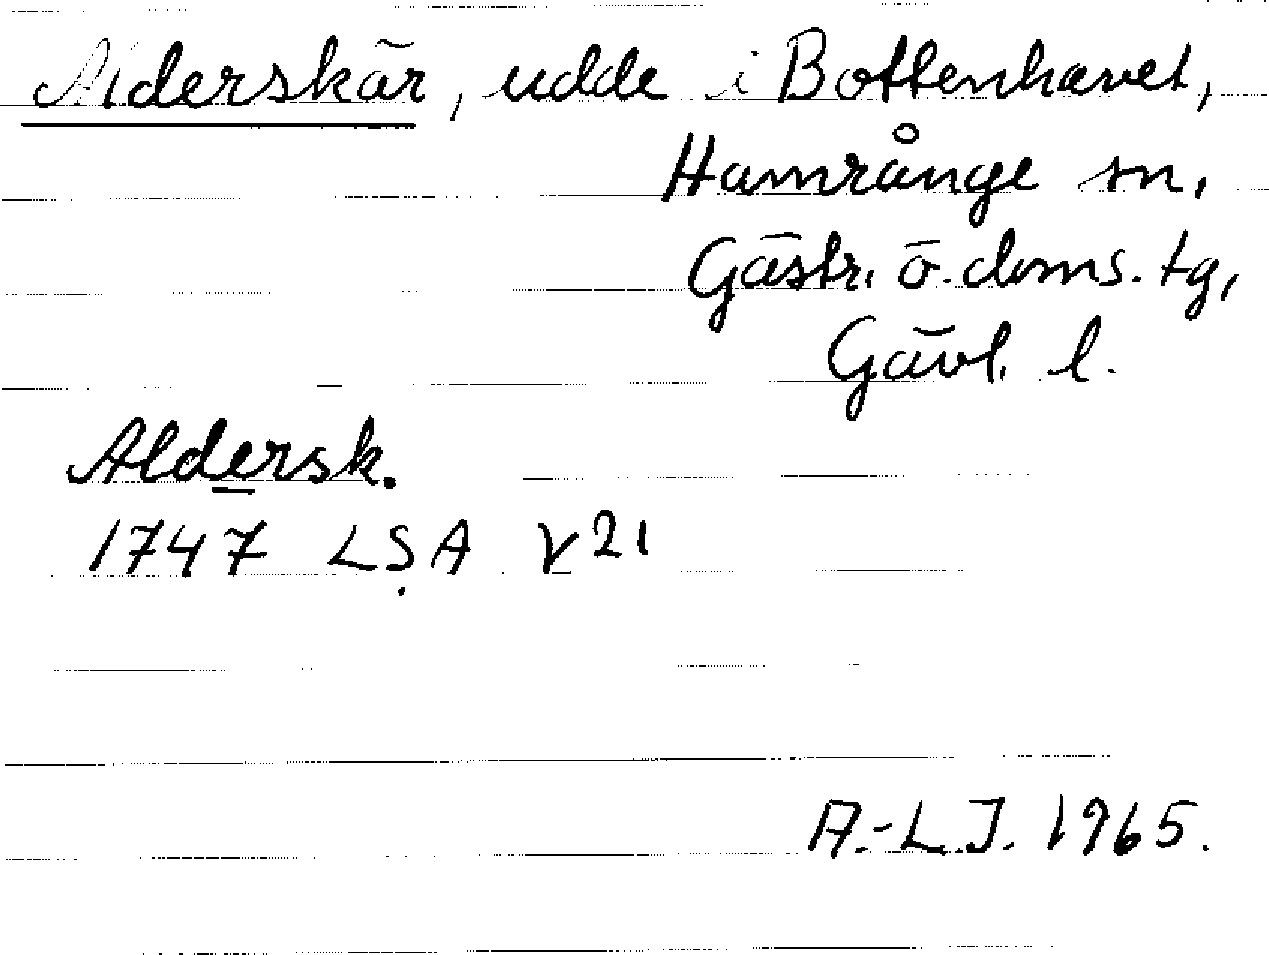 Alderskär, udde i Bottenhavet,
Hamrånge sn,
Gästr. ö. doms. tg,
Gävl. l.
Aldersk.
1747 LSA V 21
A.-L.J. 1965.